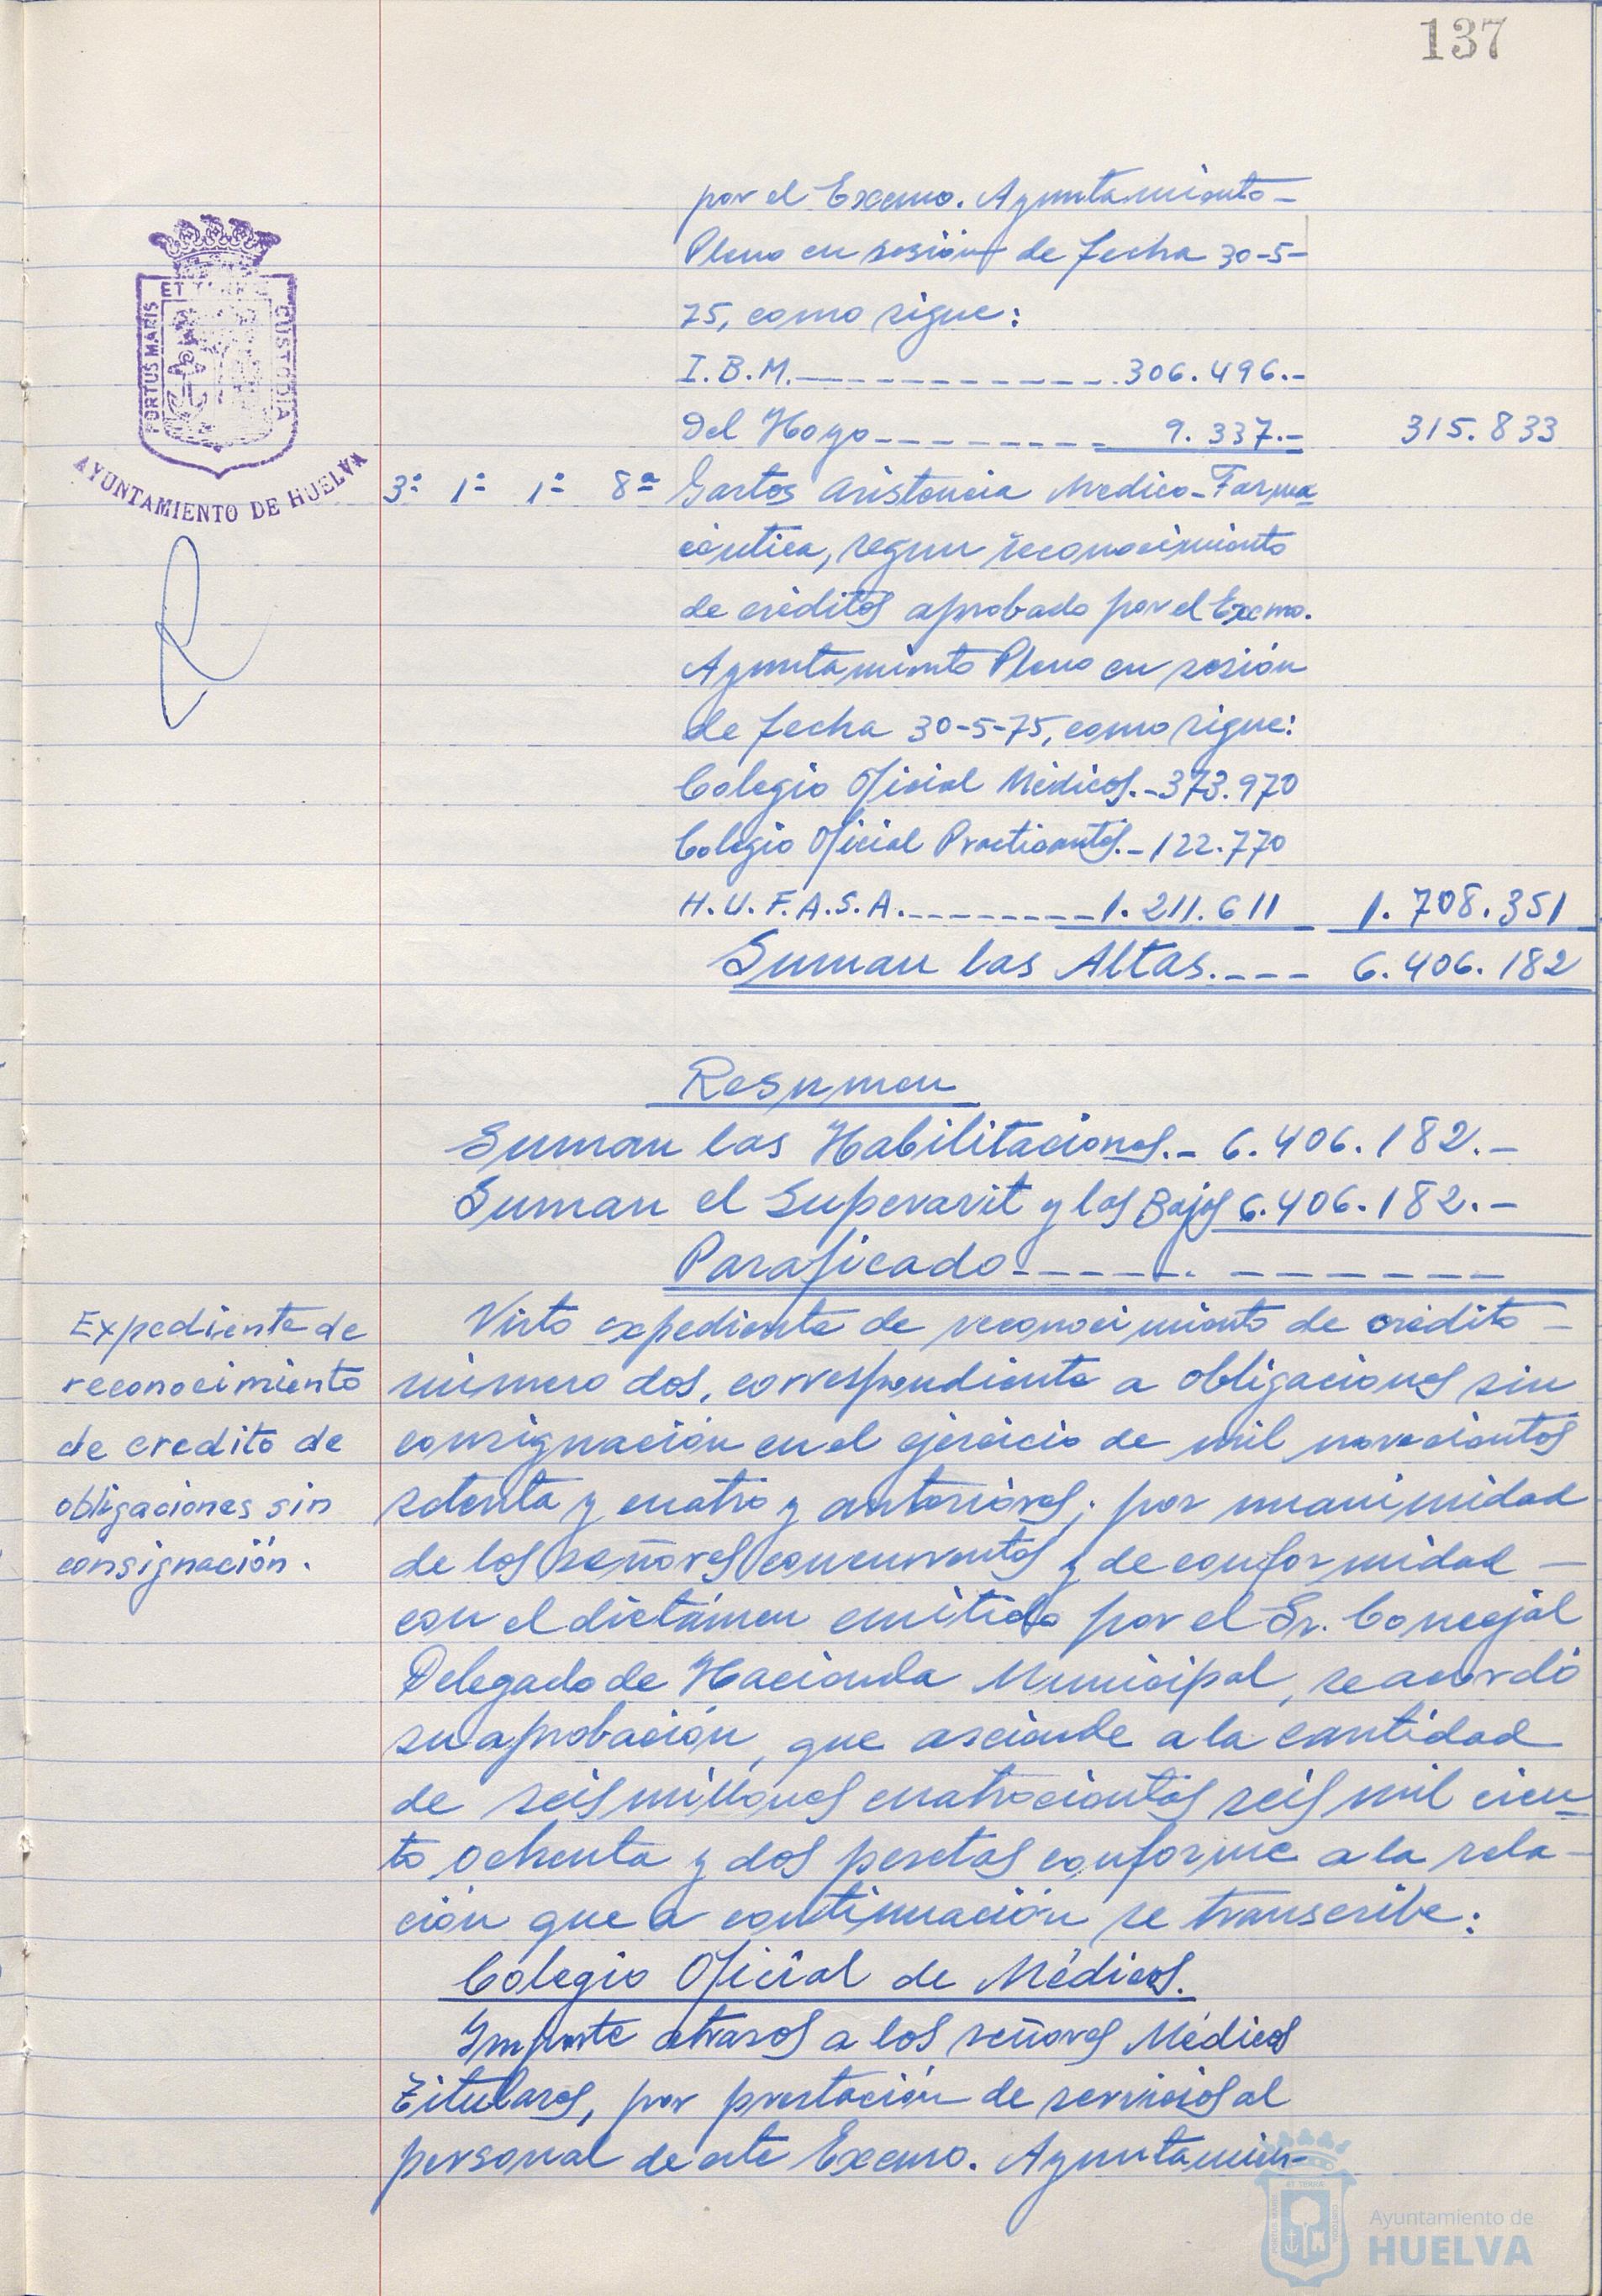 137
por el Excmo. Ayuntamiento-
Pleno en sesión de fecha 30-5-
75, como sigue:
I.B.M.___________.306.496.-
Del Hoyo_________9.337.- 315.833
3ª 1ª 1ª 8ª Gastos Asistencia Medico-Farma
céutica, segun reconocimiento
de créditos aprobado por el Excmo.
Ayuntamiento Pleno en sesión
de fecha 30-5-75, como sigue:
Colegio Oficial Médicos.-373.970
Colegio Oficial Practicantes.-122.770
H.U.F.A.S.A.________1.211.611 1.708.351
Suman las Altas.---- 6.406.182
Resumen
Suman las Habilitaciones.- 6.406.182.-
Suman el Superavit y las Bajas 6.406.182.-
Parificado
Expediente de
reconocimiento
de credito de
obligaciones sin
consignación.
Visto expediente de reconocimiento de crédito -
número dos, correspondiente a obligaciones sin
consignación en el ejercicio de mil novecientos
setenta y cuatro y anteriores; por unanimidad
de los señores concurrentes y de conformidad -
con el dictámen emitido por el Sr. Concejal
Delegado de Hacienda Municipal, se acordó
su aprobación, que asciende a la cantidad
de seis millones cuatrocientas seis mil cien-
to ochenta y dos pesetas conforme a la rela-
ción que a continuación se transcribe:
Colegio Oficial de Médicos.
Importe atrasos a los señores Médicos
Titulares, por prestación de servicios al
personal de este Excmo. Ayuntamien-
PORTUS MARIS ET TERRAE CUSTODIA
AYUNTAMIENTO DE HUELVA
Ayuntamiento de
HUELVA